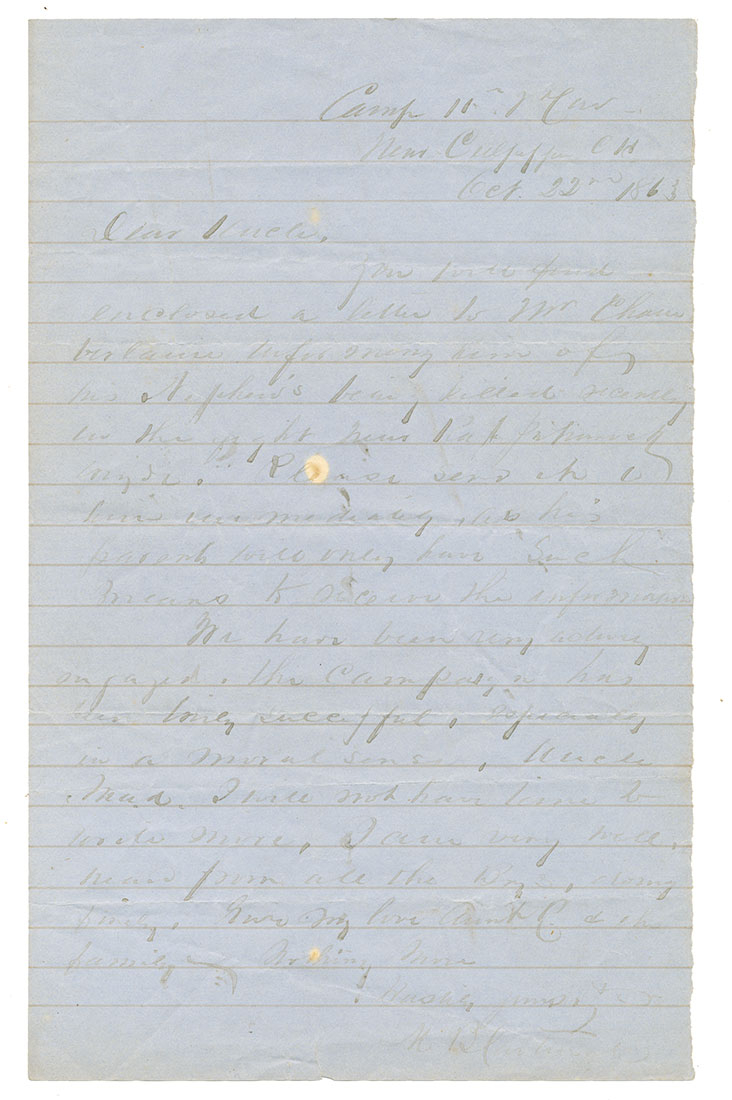 Camp 11th Va Cav
Near Culpepper C H
Oct. 22nd 1863
Dear Uncle,
You will find
enclosed a letter to Mr Cham
berlain informing him of
his Nephew's being killed recently
in the fight near Rappahannock
Bridge. Please send it to
him immediately, as his
parents will only have such
means to receive the information
We have been very actively
engaged. the Campaign has
been very successful, especially
in a moral sense. Uncle
Mad. I will not have time to
write more, I am very well,
hear from all the Boys, doing
finely. Give my love Aunt C. & the
family Nothing more
Hastily yours
M B